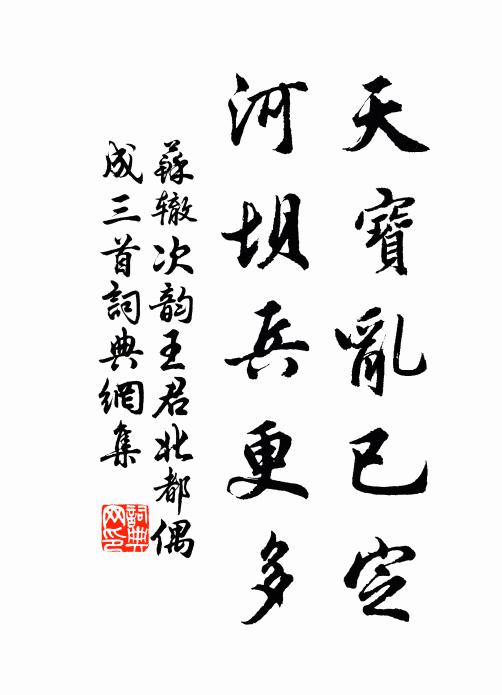 天寶亂已定
河坝兵更多
蘇辙次韵王君北都偶
成三首詞典網集
詞典网印